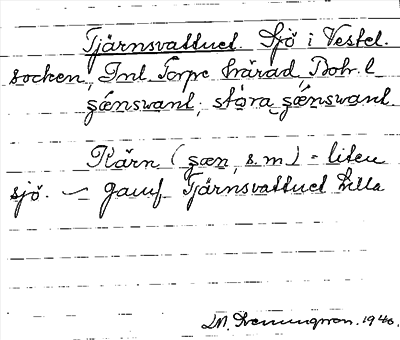 Tjärnsvattnet. Sjö i Vestel.
socken, Inl. Torpe härad Boh. l
s̨ǽnswant, stóra s̨ǽnswant.
Kärn (s̨æn, s.m) = liten
sjö. – Jämf Tjärnsvattnet Lilla
1940.